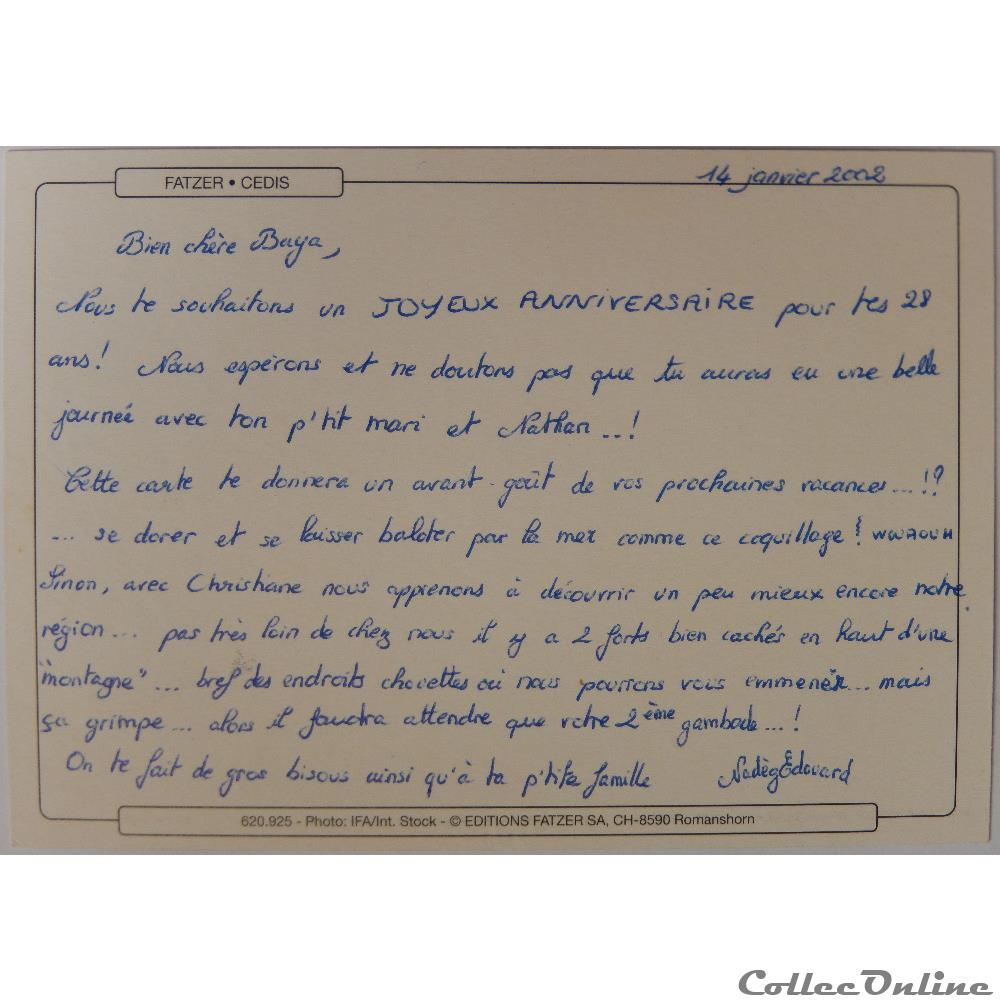 FATZER • CEDIS
14 janvier 2002
Bien chère Baya,
Nous te souhaitons un JOYEUX ANNIVERSAIRE pour tes 28
ans! Nous espérons et ne doutons pas que tu auras eu une belle
journée avec ton p'tit mari et Nathan...!
Cette carte te donnera un avant-goût de vos prochaines vacances...!?
... se dorer et se laisser baloter par la mer comme ce coquillage! WOUAOUH
Sinon, avec Christiane nous apprenons à découvrir un peu mieux encore notre
région... pas très loin de chez nous il y a 2 forts bien cachés en haut d'une
"montagne"... bref des endroits chouettes où nous pourrons vous emmener... mais
ça grimpe... alors il faudra attendre que votre 2ème gambade...!
On te fait de gros bisous ainsi qu'à ta p'tite famille NadègEdouard
620.925 - Photo: IFA/Int. Stock - © EDITIONS FATZER SA, CH-8590 Romanshorn
CollecOnline